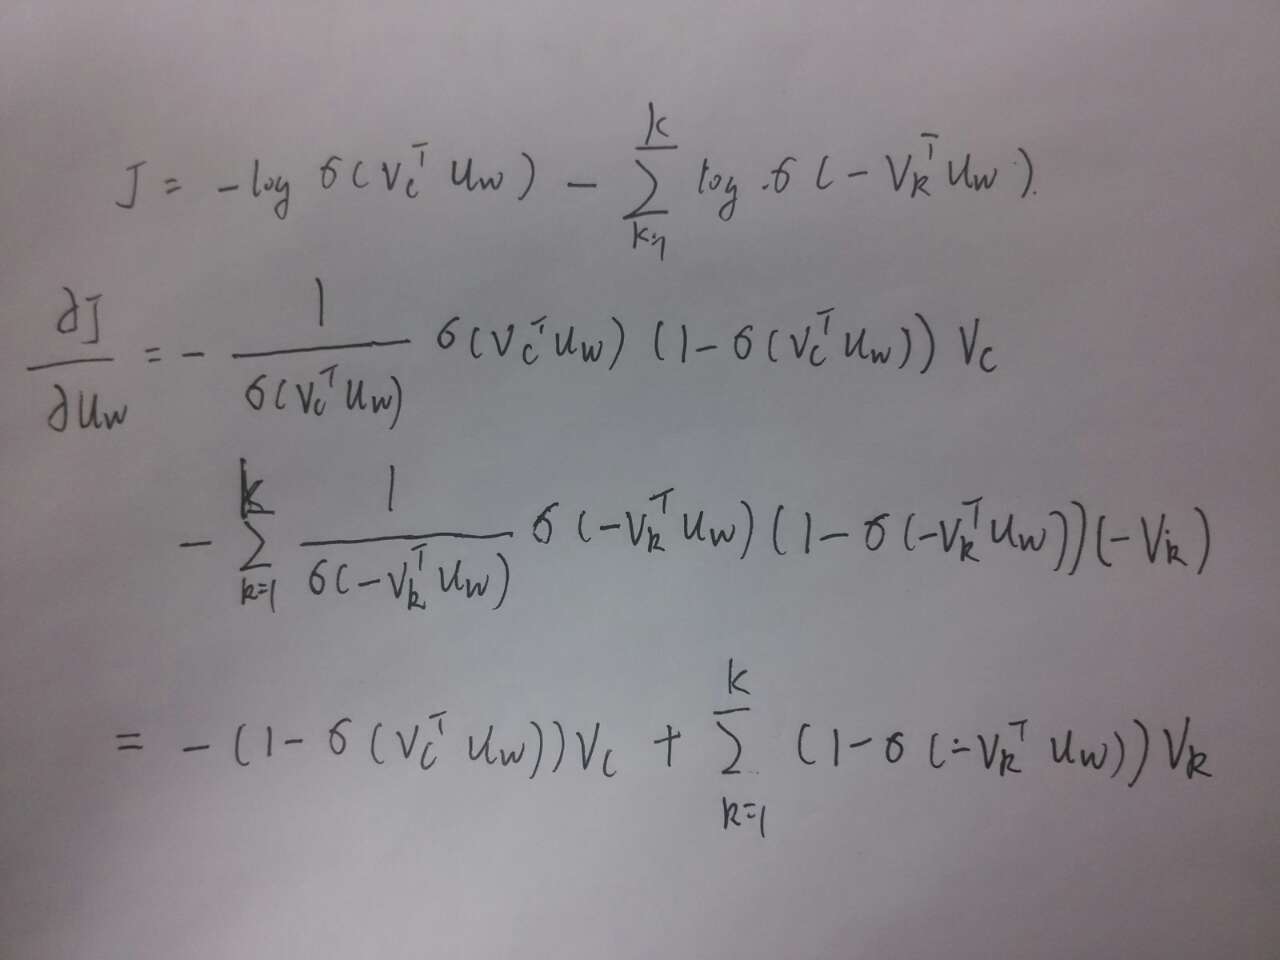 J = -log σ(V_c^T u_w) - ∑_{k=1}^{K} log σ(-V_k^T u_w).
∂J/∂u_w = - 1/σ(V_c^T u_w) σ(V_c^T u_w) (1-σ(V_c^T u_w)) V_c
- ∑_{k=1}^{K} 1/σ(-V_k^T u_w) σ(-V_k^T u_w) (1-σ(-V_k^T u_w))(-V_k)
= -(1-σ(V_c^T u_w))V_c + ∑_{k=1}^{K} (1-σ(-V_k^T u_w))V_k